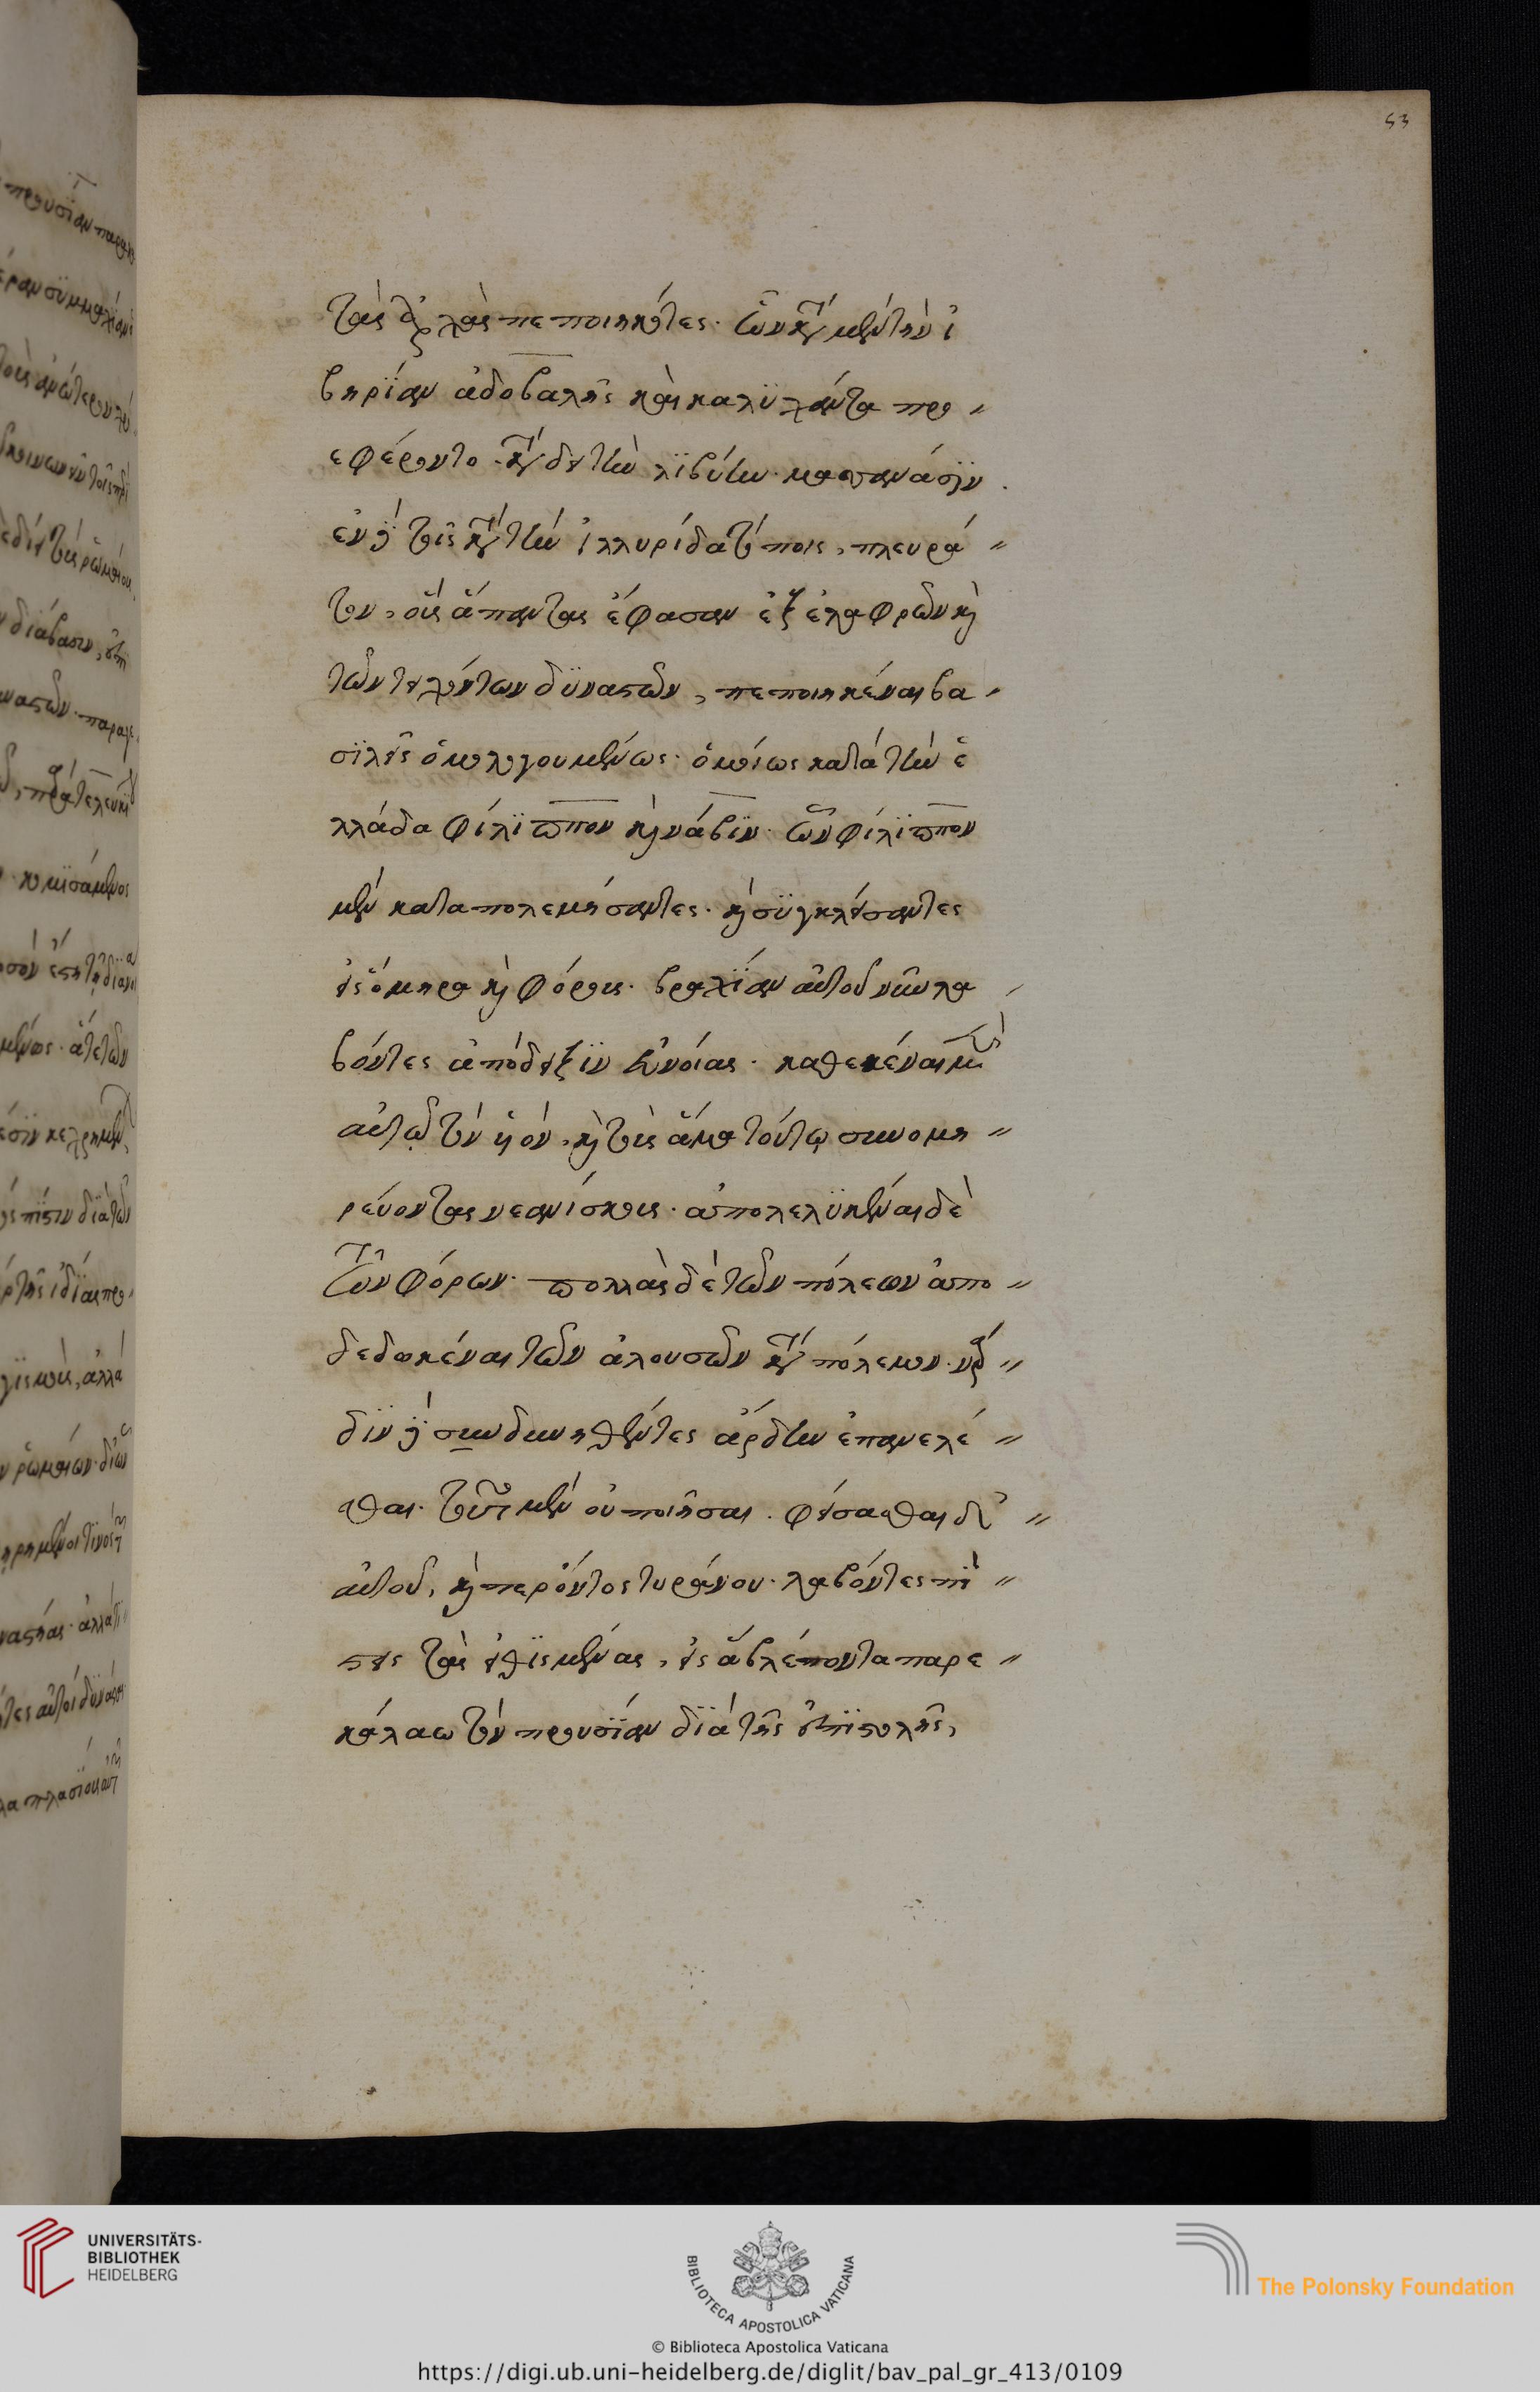 53
τὰς ἀρχὰς πεποιηκότες. ὧν κατὰ μὲν τὴν ἰ
βηρΐαν ἀδοβαλης καὶ καλϋχαντα προ
εφέροντο. κατὰ δὲ τὴν λϊβύην. μασανάσϊν.
ἐν δὲ τοῖς κατὰ τὴν ἰλλυρίδα τόποις, πλευρά
τον, οὓς ἅπαντας ἔφασαν ἐξ ἐλαφρῶν καὶ
τῶν τυχόντων δϋναστῶν, πεποιηκέναι βα
σϊλεῖς ὁμολογουμένως. ὁμοίως κατὰ τὴν ἑ
λλάδα φίλϊππον καὶ νάβϊν. ὧν φίλϊππον
μὲν καταπολεμήσαντες. καὶ σϋγκλείσαντες
εἰς ὅμηρα καὶ φόρους. βραχεΐαν αὐτοῦ νῦν λα
βόντες ἀπόδειξϊν εὐνοίας. καθεκέναι μὲν
αὐτῷ τὸν υἱόν. καὶ τοὺς ἅμα τούτῳ συνομη
ρεύοντας νεανίσκους. ἀπολελϋκέναι δὲ
τῶν φόρων. πολλὰς δὲ τῶν πόλεων ἀπο
δεδωκέναι τῶν ἁλουσῶν κατὰ πόλεμον. νά
βϊν δὲ συνδυνηθέντες ἄρδην ἐπανελέ
σθαι. τοῦτο μὲν οὐ ποιῆσαι. φείσασθαι δὲ
αὐτοῦ, καὶ περ ὄντος τυράνου. λαβόντες πί
στεις τὰς εἰθϊσμένας, εἰς ἃ βλέποντα παρε
κάλαω τὸν προυσΐαν δϊὰ τῆς ἐπϊστολῆς,
UNIVERSITÄTS-
BIBLIOTHEK
HEIDELBERG
BIBLIOTECA APOSTOLICA VATICANA
The Polonsky Foundation
© Biblioteca Apostolica Vaticana
https://digi.ub.uni-heidelberg.de/diglit/bav_pal_gr_413/0109